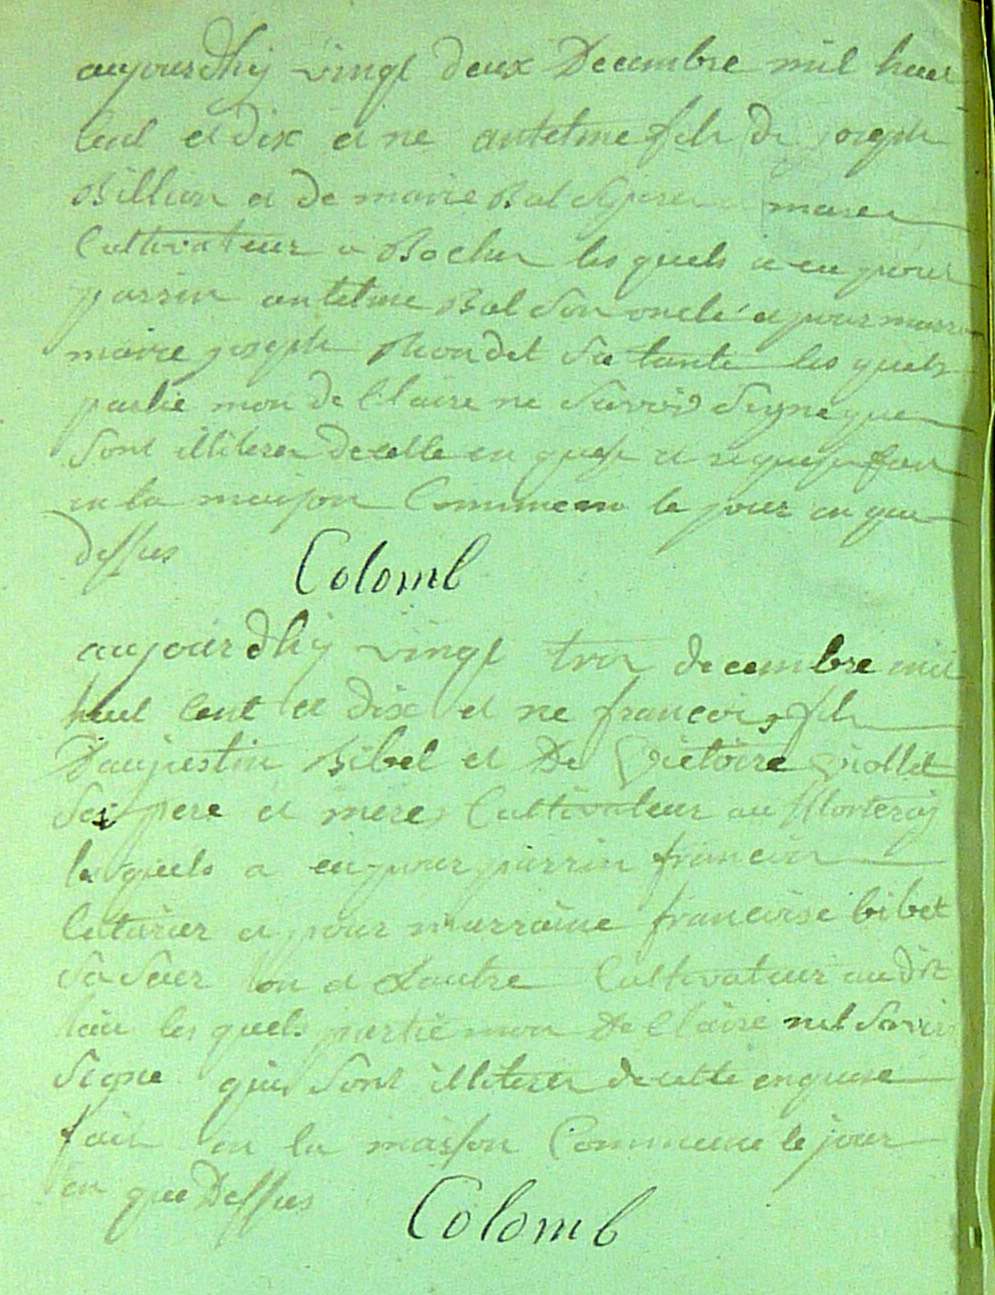 aujourdhÿ vingt deux Decembre mil huit
Cent et dix et ne antelme fils de joseph
Billion et de marie Bal
Cultivateur a Rocher les quels a eu pour
parrin antelme Bal son oncle et pour marr
marie joseph Blondet sa tante les quels
partie mon declaire ne savoir signe que
sont illiterer decelle en ques et requis fait
en la maison Commune le jour en que
dessus
Colomb
aujourdhÿ vingt troi decembre mil
huit Cent et dix et ne francois fils
Daujustin Bibel et De victoire viollet
Ses pere et mere Cultivateur au
les quels a eu pour parrin francois
et pour marraine francoise bibet
sa seur lon et Lautre Cultivateur au dit
lieu les quels partie mon Declaire nel savoir
signe que sont illiterer decette enquise
fait en la maison Commune le jour
en que Dessus
Colomb